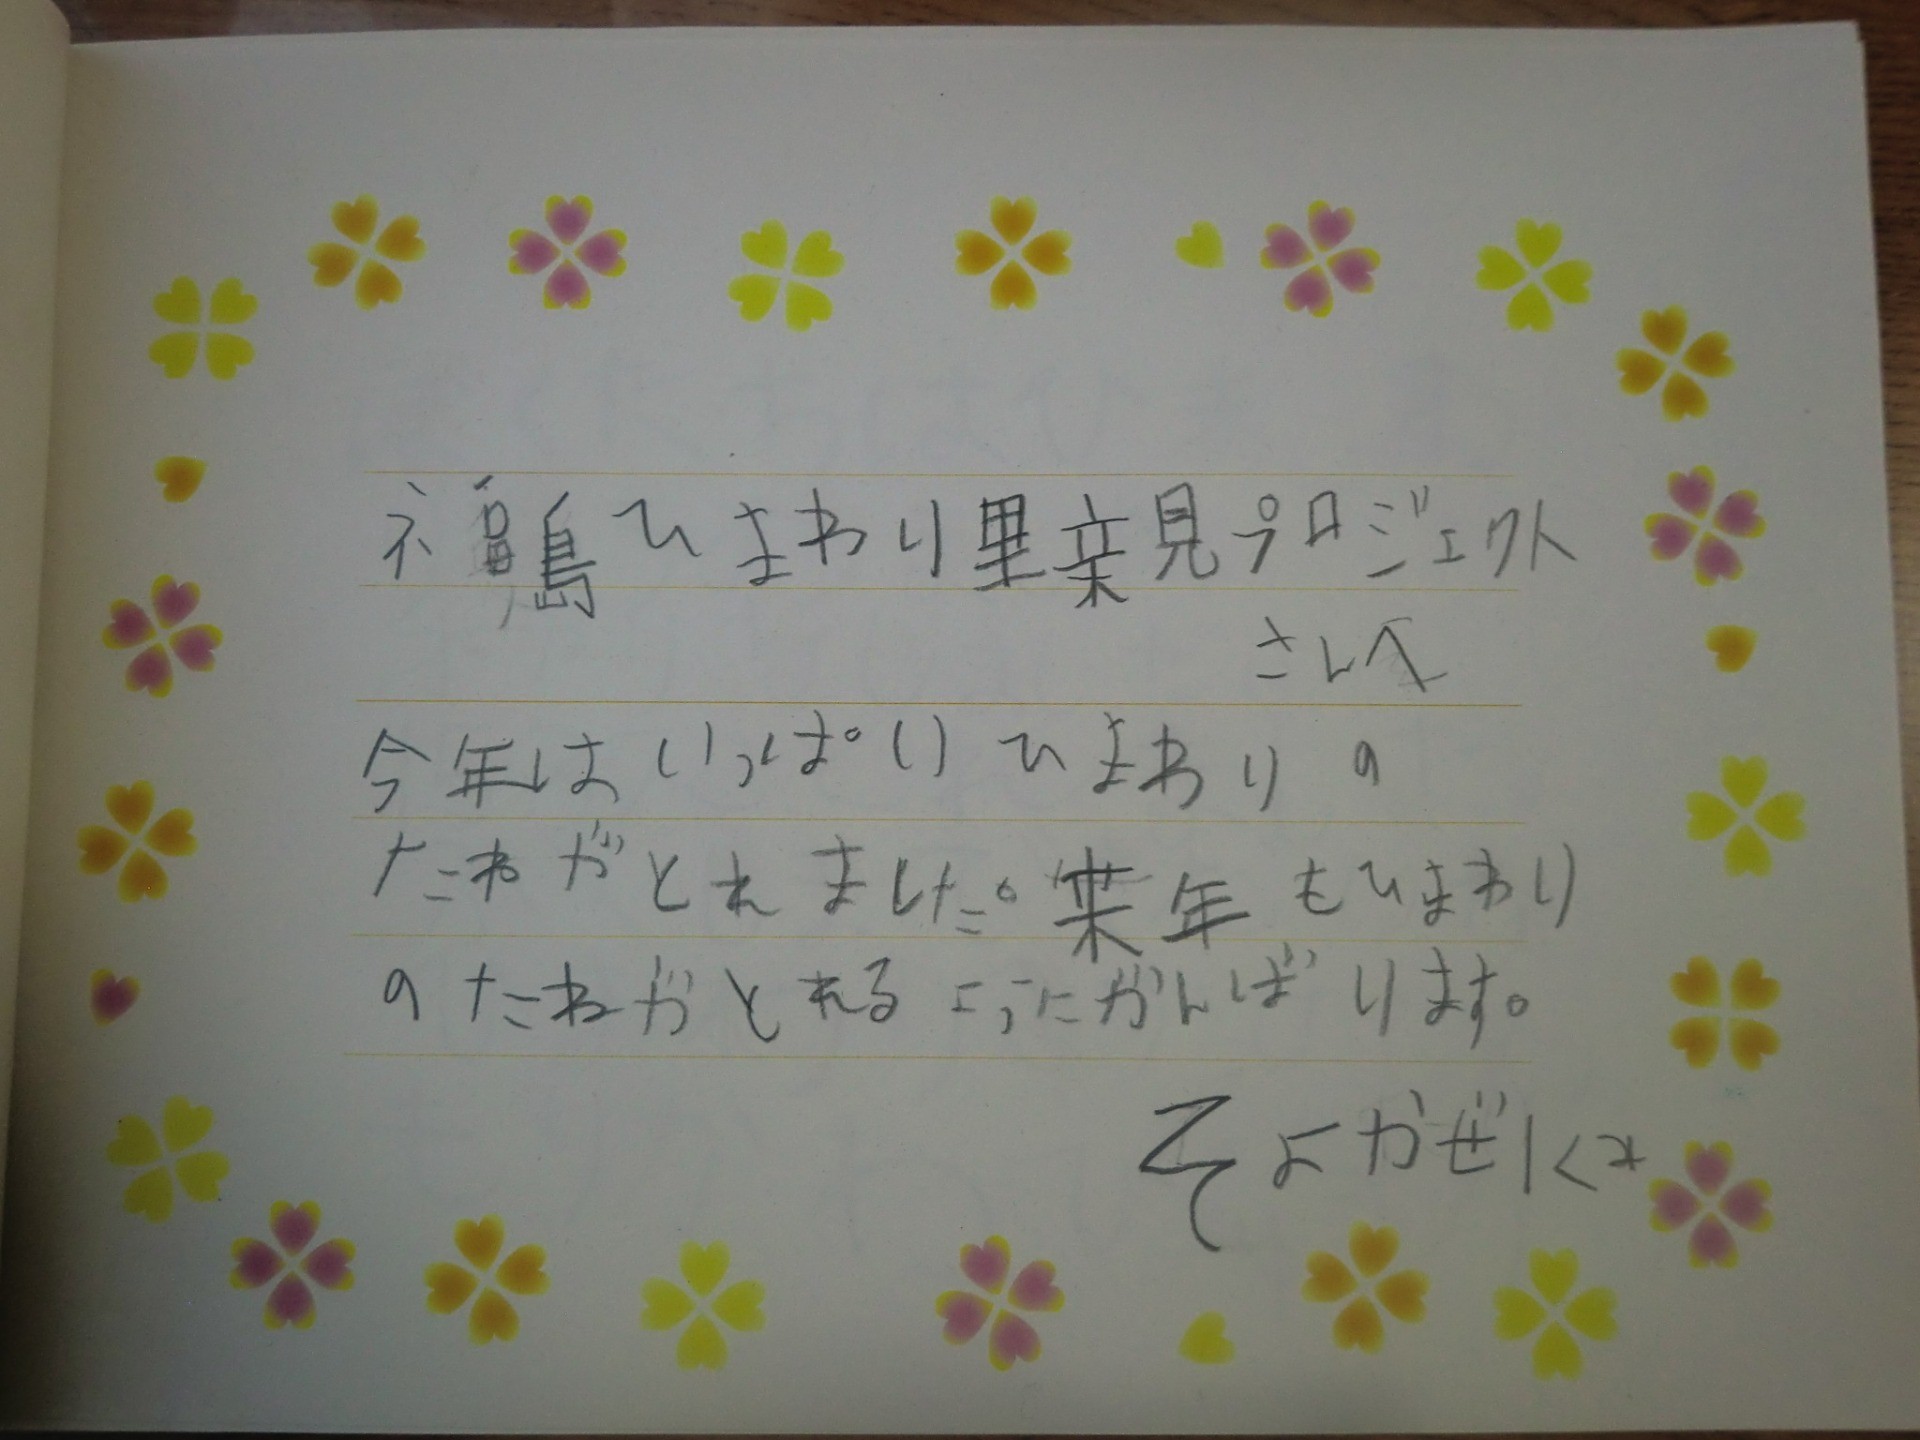 福島ひまわり里親見プロジェクト
さんへ
今年はいっぱいひまわりの
たねがとれました。来年もひまわり
のたねがとれるようにがんばります。
そよかぜ